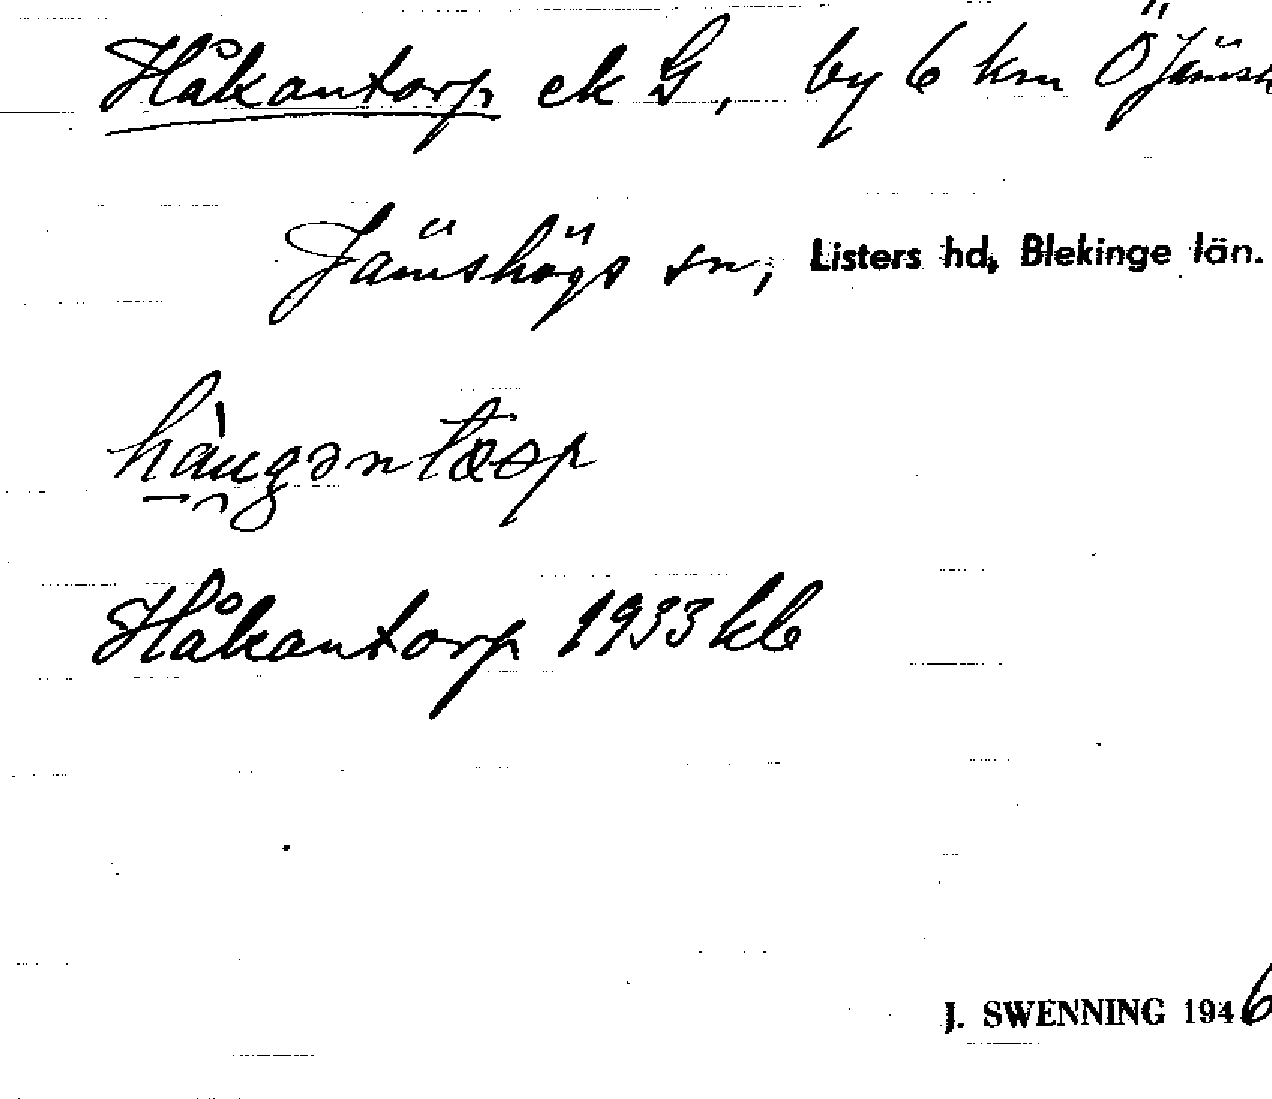 Håkantorp ek G, by 6 km Ö Jämsh
Jämshögs sn, Listers hd, Blekinge län.
Håkantorp 1933 kb
J. SWENNING 1946